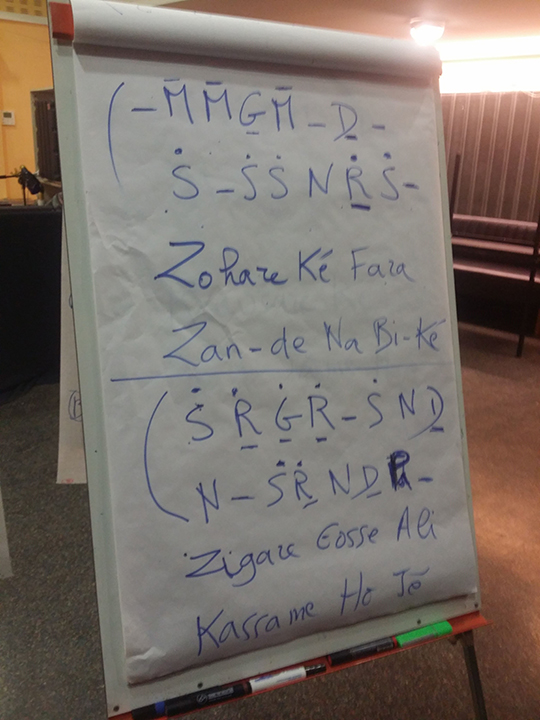 (– M̄ M̄ G̱ M̄ – Ḏ –
Ṡ – Ṡ Ṡ N Ṟ̇ Ṡ –
Zohare Ké Faza
Zan-de Na Bi-Ké
(Ṡ Ṟ̇ Ġ̱ Ṟ̇ – Ṡ N Ḏ
N – Ṡ Ṟ̇ N Ḏ P –
Zigare Gosse Ali
Kassame Ho Jé